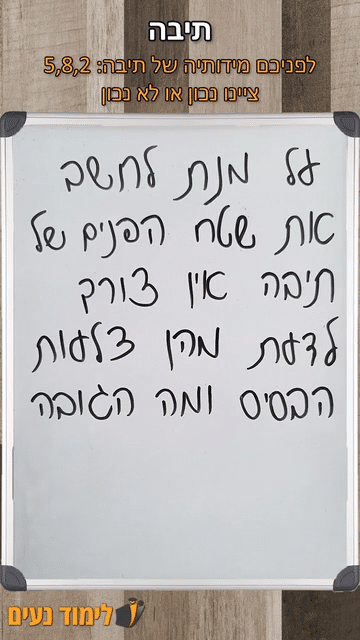 תיבה
לפניכם מידותיה של תיבה: 5,8,2
ציינו נכון או לא נכון
על מנת לחשב
את שטח הפנים של
תיבה אין צורק
לדעת מהן צלעות
הבסיס ומה הגובה
לימוד נעים